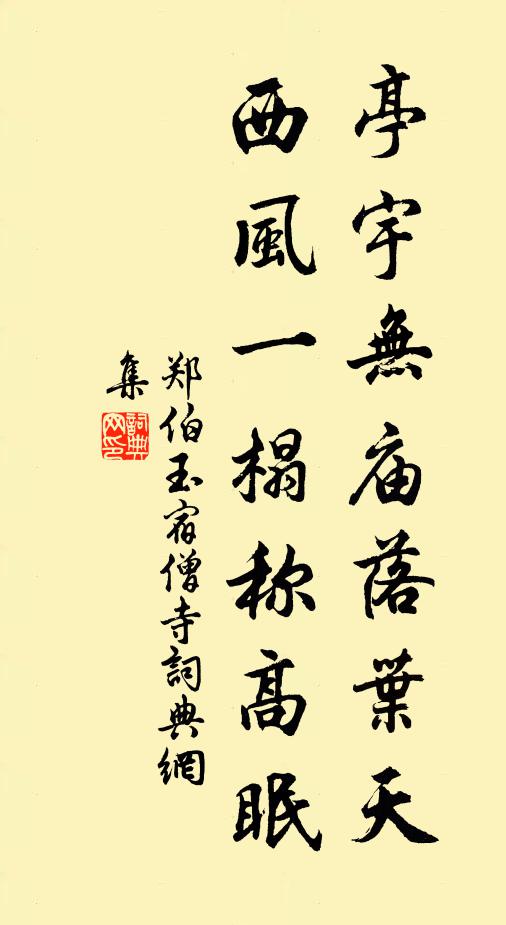 亭宇無庙落葉天
西風一榻称高眠
郑伯玉宿僧寺詞典網
集
詞典
网印